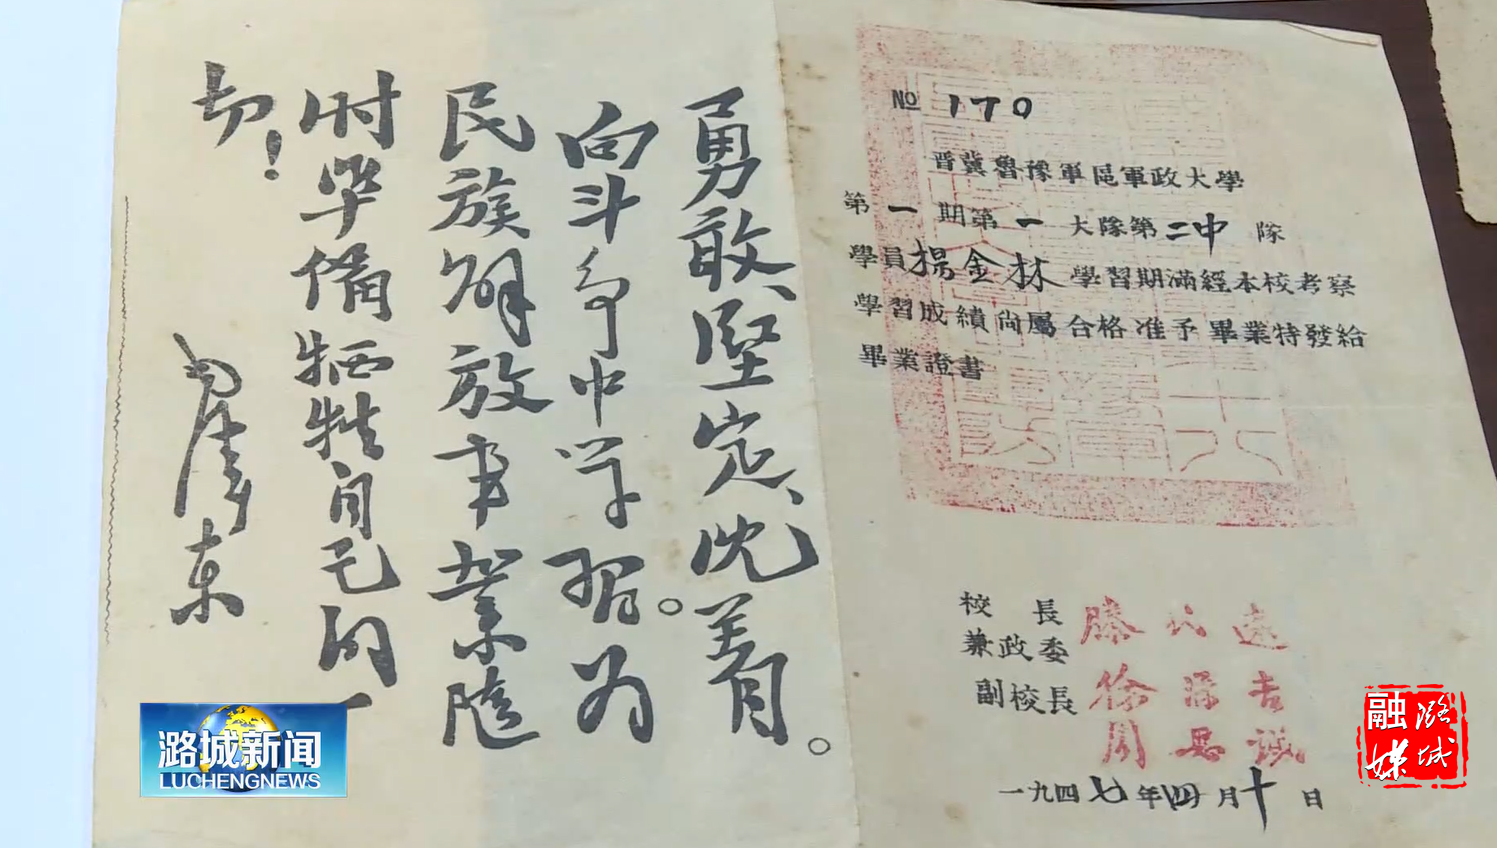 勇敢、坚定、沈着。
向斗争中学习。为
民族解放事業随
时準備牺牲自己的一
切！
毛泽东
№ 170
晋冀魯豫軍區軍政大學
第一期第一大隊第二中隊
學員楊金林學習期滿經本校考察
學習成績尚屬合格准予畢業特發給
畢業證書
校長
兼政委
滕代遠
副校長
徐深吉
周
一九四七年四月十日
潞城新闻
LUCHENGNEWS
潞城
融媒